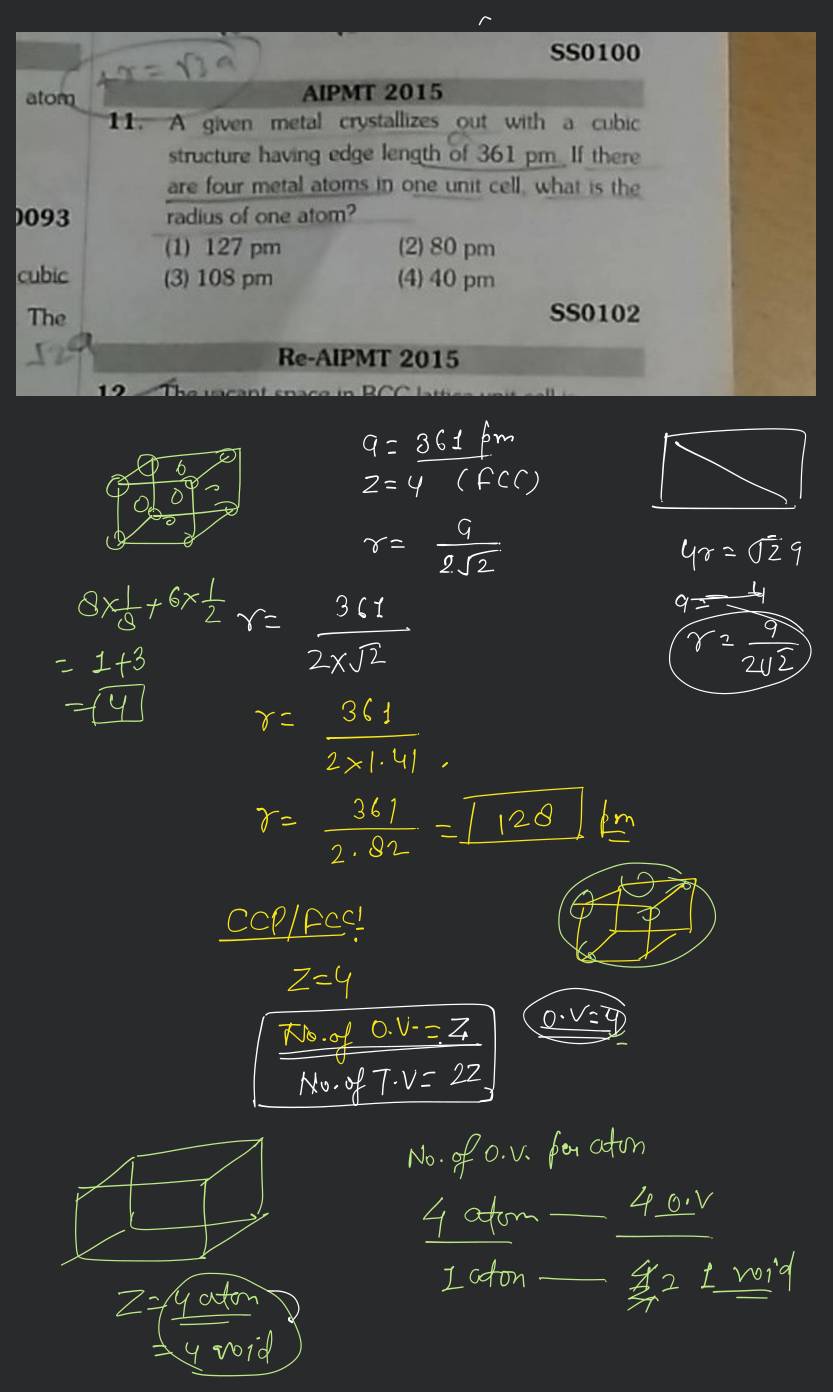 SS0100
4r = √3 a
atom
AIPMT 2015
11. A given metal crystallizes out with a cubic
structure having edge length of 361 pm. If there
are four metal atoms in one unit cell, what is the
radius of one atom?
0093
(1) 127 pm (2) 80 pm
cubic
(3) 108 pm (4) 40 pm
The
SS0102
√2a
Re-AIPMT 2015
12. The vacant space in BCC lattice unit cell is
a = 361 pm
Z = 4 (FCC)
r = a/2√2
4r = √2 a
a = 4
r = a/2√2
8×1/8 + 6×1/2
= 1+3
= 4
r = 361/2×√2
r = 361/2×1.41
r = 361/2.82 = 128 pm
CCP/FCC:
Z=4
No. of O.V. = Z
No. of T.V = 2Z
O.V=4
No. of O.V. per atom
4 atom — 4 O.V
1 atom — 1 void
Z = 4 atom
= 4 void